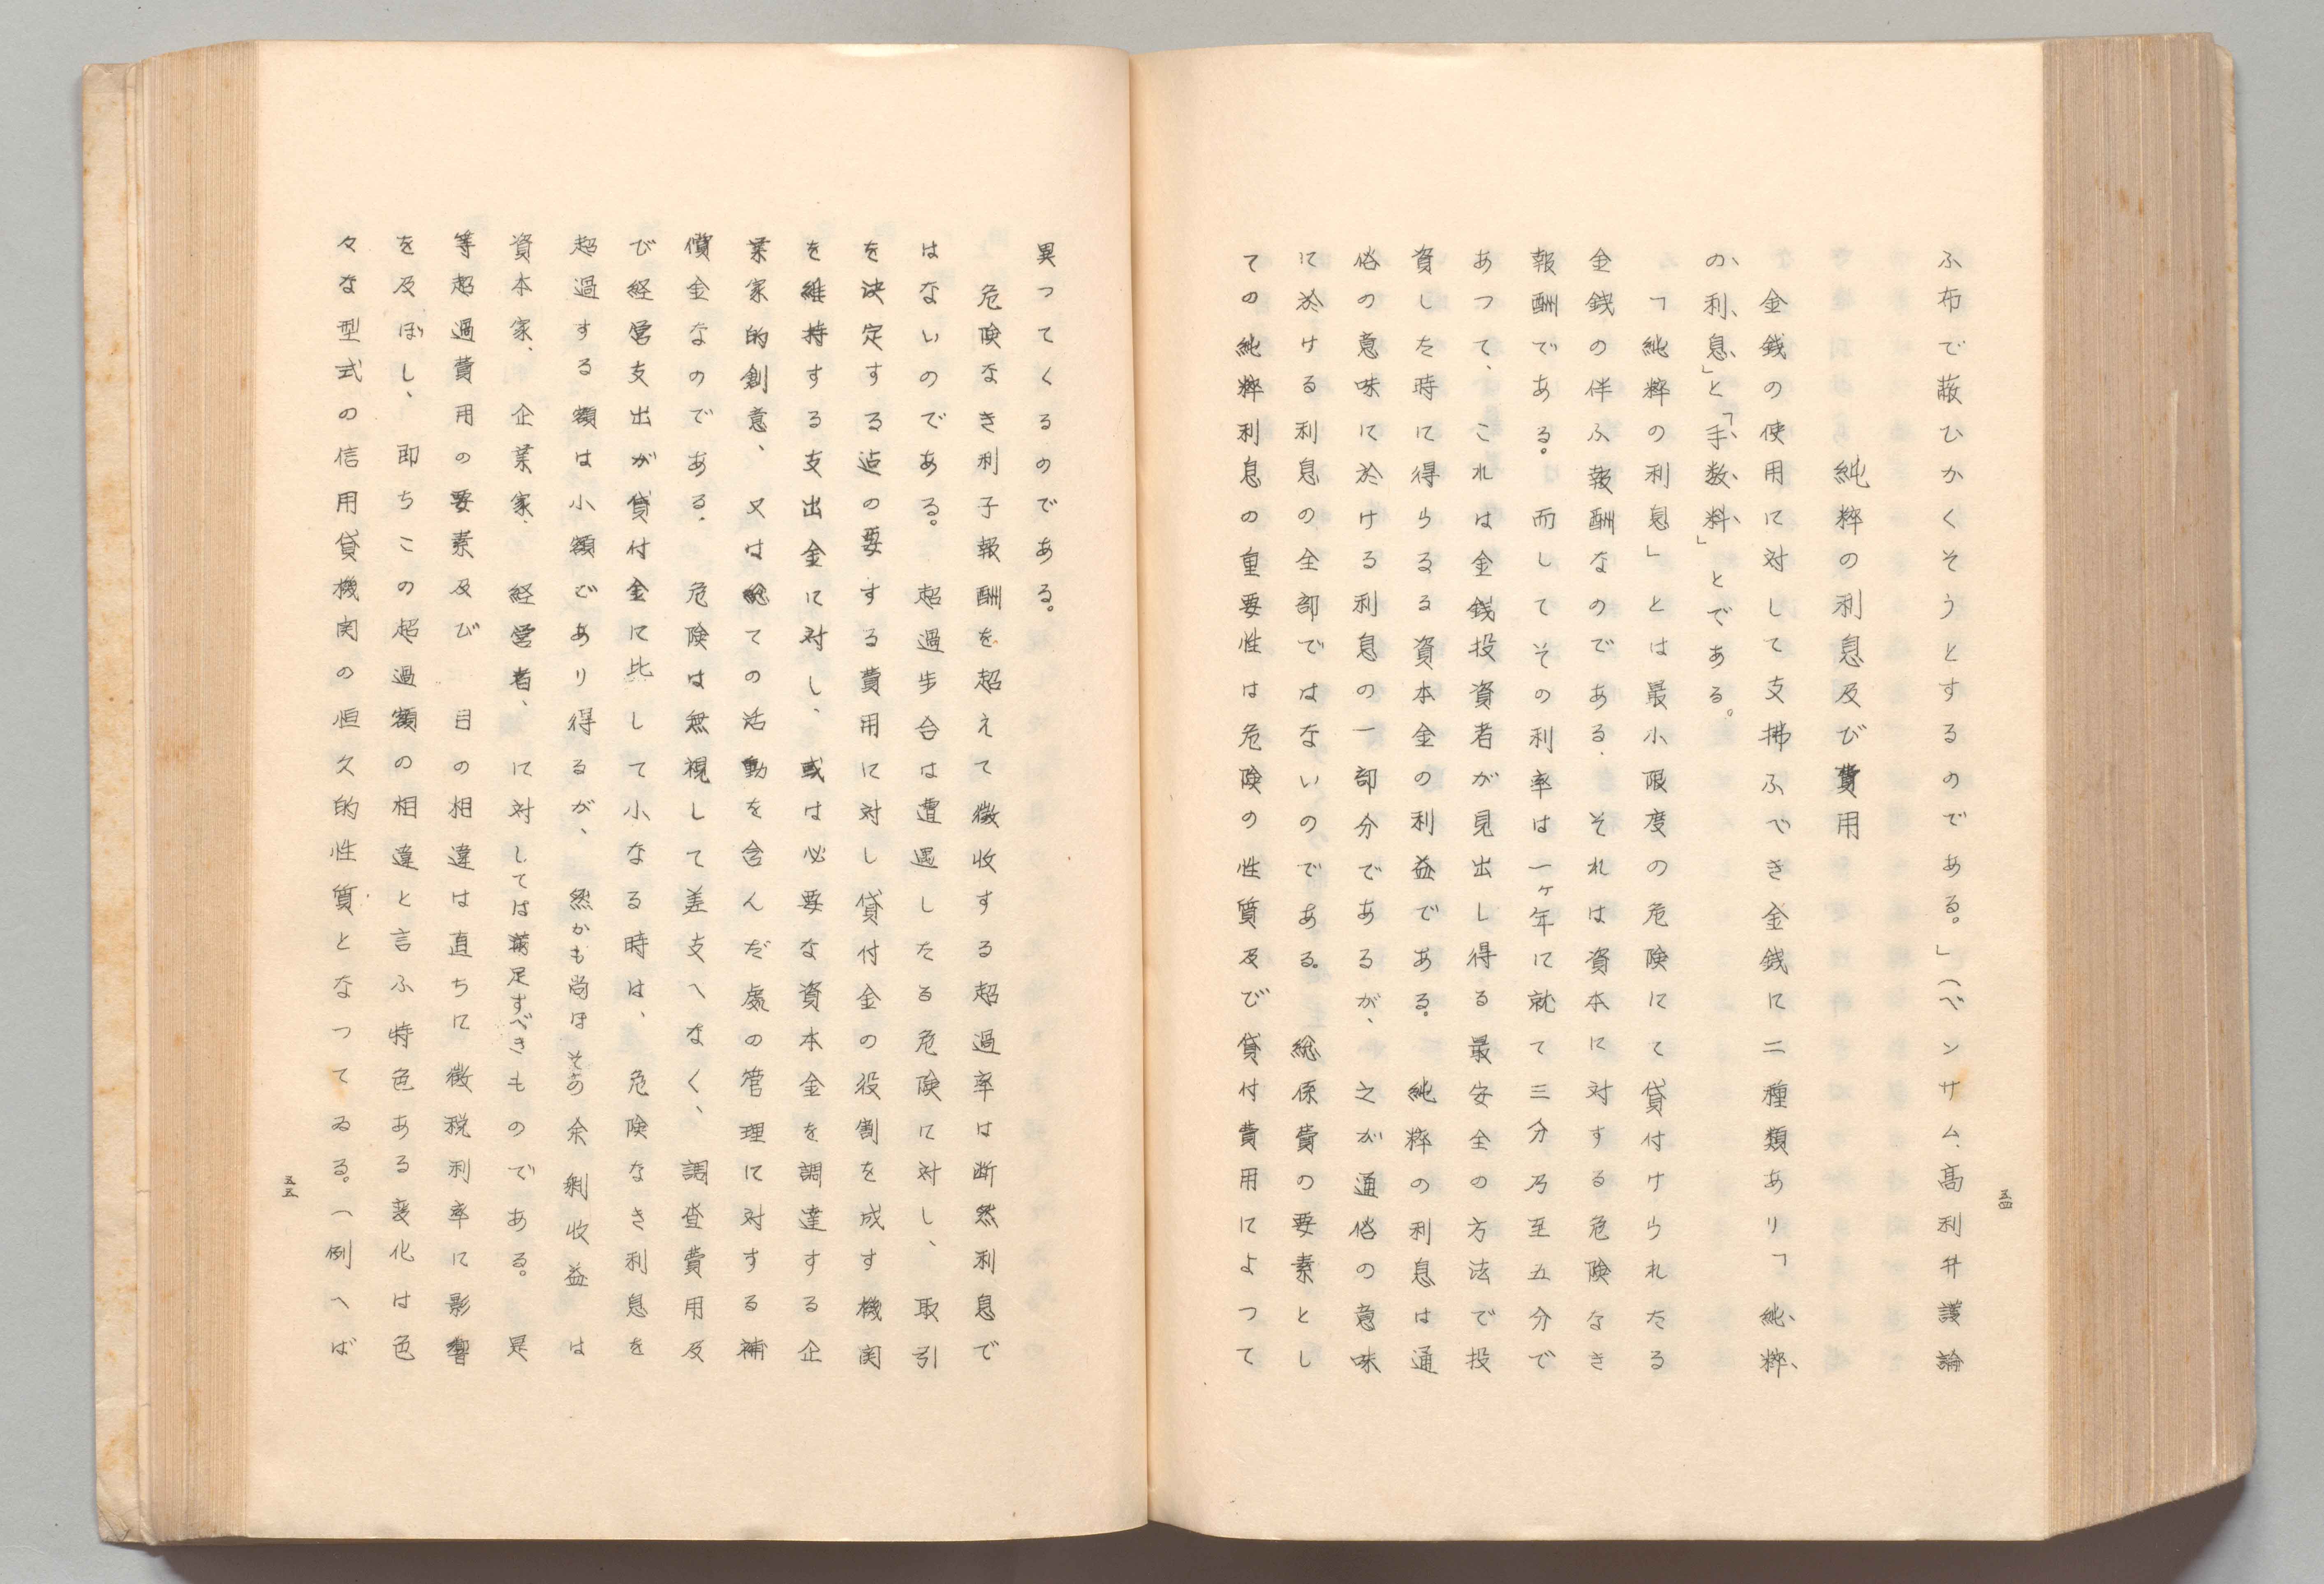 ふ布で蔽ひかくそうとするのである。」（ベンサム、高利弁護論
純粋の利息及び費用
金銭の使用に対して支拂ふべき金銭に二種類あり「純粋
の利息」と「手数料」とである。
「純粋の利息」とは最小限度の危険にて貸付けられたる
金銭の伴ふ報酬なのである．それは資本に対する危険なき
報酬である。而してその利率は一ヶ年に就て三分乃至五分で
あつて、これは金銭投資者が見出し得る最安全の方法で投
資した時に得らるる資本金の利益である。純粋の利息は通
俗の意味に於ける利息の一部分であるが、之が通俗の意味
に於ける利息の全部ではないのである。総係費の要素とし
ての純粋利息の重要性は危険の性質及び貸付費用によつて
五四
異つてくるのである。
危険なき利子報酬を超えて徴收する超過率は断然利息で
はないのである。超過歩合は遭遇したる危険に対し、取引
を決定する迠の要する費用に対し貸付金の役割を成す機関
を維持する支出金に対し、或は必要な資本金を調達する企
業家的創意、又は総ての活動を含んだ處の管理に対する補
償金なのである．危険は無視して差支へなく、調査費用及
び経営支出が貸付金に比して小なる時は、危険なき利息を
超過する額は小額であり得るが、然かも尚ほその余剰收益は
資本家、企業家、経営者、に対しては満足すべきものである。是
等超過費用の要素及び　目の相違は直ちに徴税利率に影響
を及ぼし、即ちこの超過額の相違と言ふ特色ある変化は色
々な型式の信用貸機関の恒久的性質となつてゐる。（例へば
五五